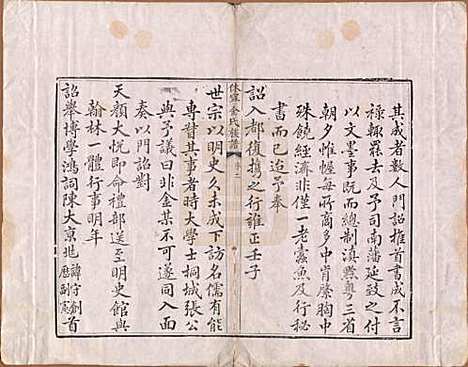 其成者数人門詔推首書成不言
禄輙罷去及予司南藩延致之付
以文墨事既而總制滇黔粤三省
朝夕惟幄每所商多中肯綮胸中
殊饒經濟非僅一老蠹魚及行秘
書而已迨予奉
詔入都復携之行雍正壬子
休寧金氏族譜
世宗以明史久未成下訪名儒有能
專對其事者時大學士桐城張公
與予議曰非金某不可遂同入面
奏以門詔對
天顔大悦即命禮部送至明史館與
翰林一體行事明年
詔舉博學鴻詞陳大京兆諱守創歷副憲首